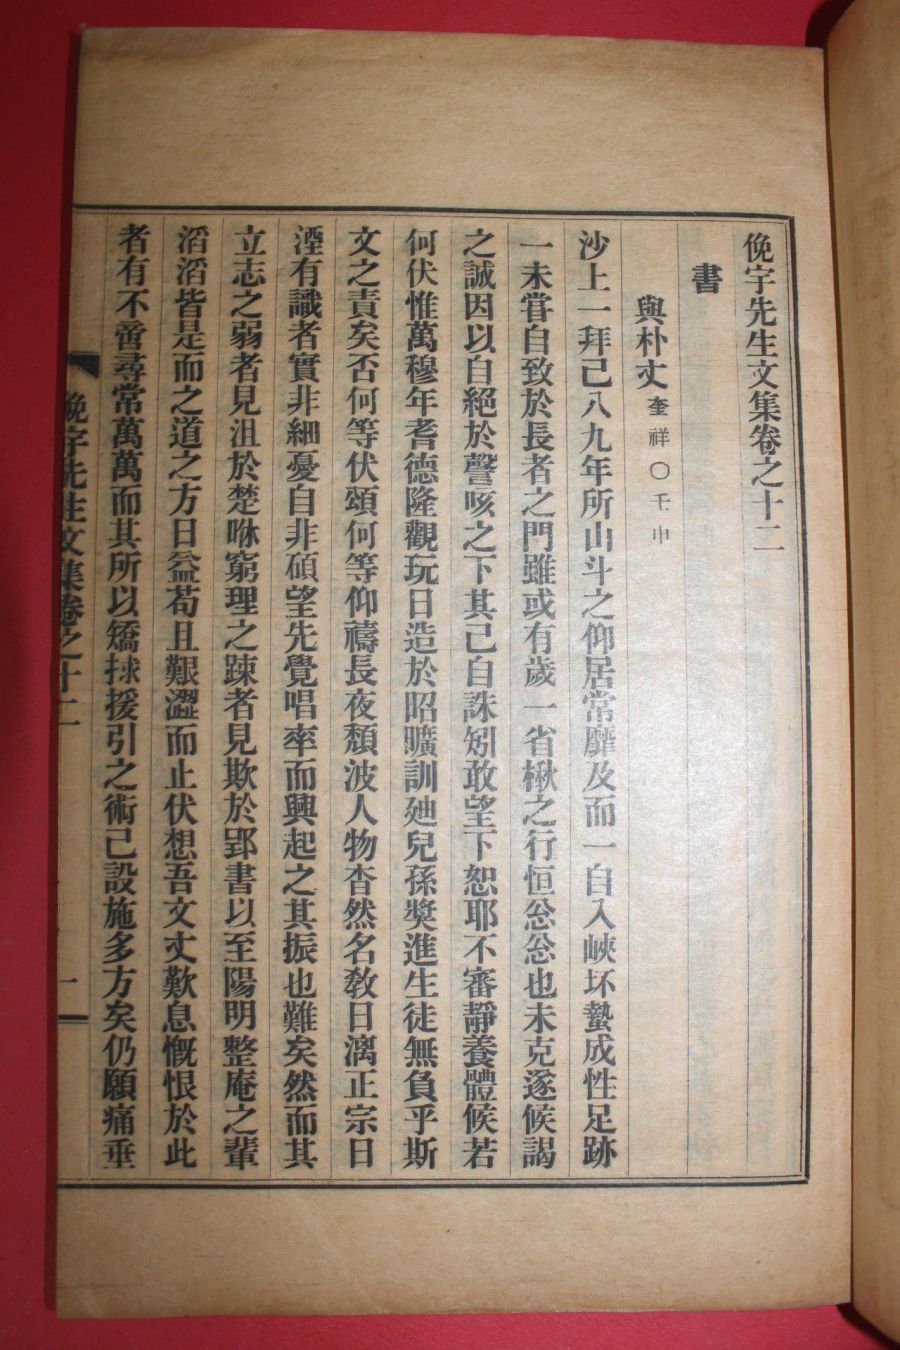 俛宇先生文集卷之十二
書
與朴丈奎祥〇壬申
沙上一拜已八九年所山斗之仰居常靡及而一自入峽坏蟄成性足跡
一未嘗自致於長者之門雖或有歲一省楸之行恒忩忩也未克遂候謁
之誠因以自絕於謦咳之下其已自誅矧敢望下恕耶不審靜養體候若
何伏惟萬穆年耆德隆觀玩日造於昭曠訓廸兒孫奬進生徒無負乎斯
文之責矣否何等伏頌何等仰禱長夜頹波人物杳然名敎日漓正宗日
湮有識者實非細憂自非碩望先覺唱率而興起之其振也難矣然而其
立志之弱者見沮於楚咻窮理之踈者見欺於郢書以至陽明整庵之輩
滔滔皆是而之道之方日益苟且艱澀而止伏想吾文丈歎息慨恨於此
者有不啻尋常萬萬而其所以矯捄援引之術已設施多方矣仍願痛垂
俛宇先生文集卷之十二
一